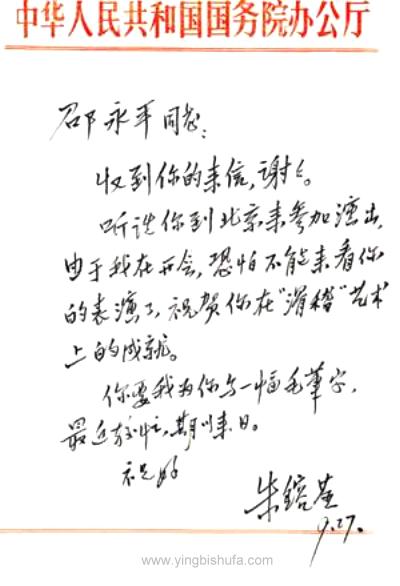 中华人民共和国国务院办公厅
邵永平同志:
收到你的来信,谢々。
听说你到北京来参加演出,
由于我在开会,恐怕不能来看你
的表演了,祝贺你在"滑稽"艺术
上的成就。
你要我为你写一幅毛筆字,
最近较忙,期以来日。
祝好
朱鎔基
9.27.
www.yingbishufa.com